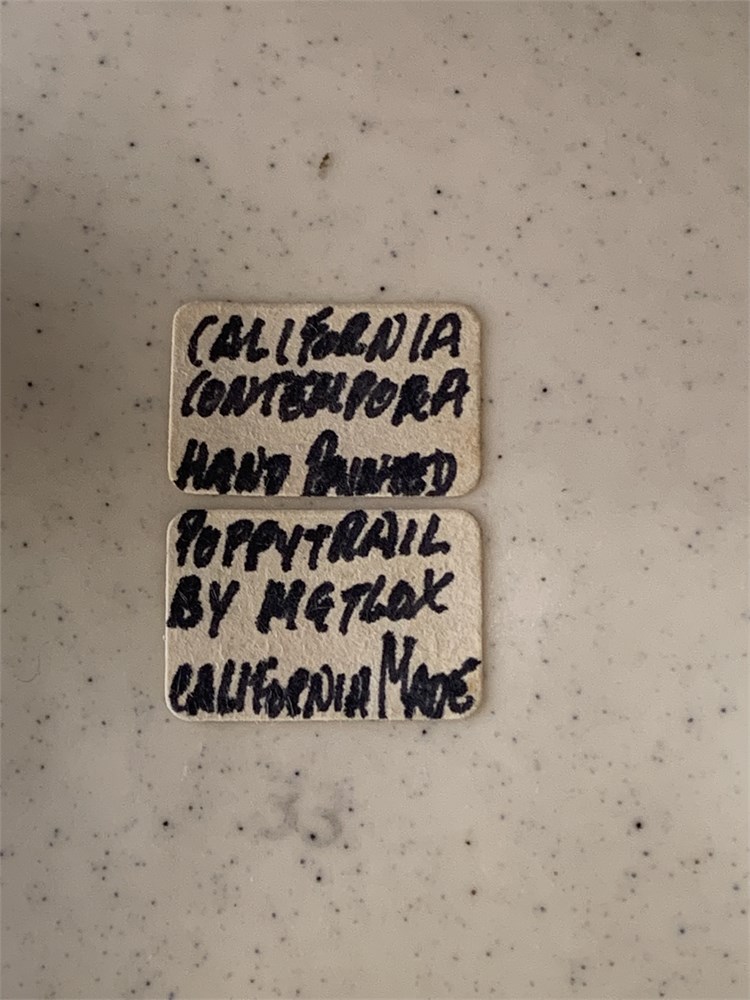 CALIFORNIA
CONTEMPORA
HAND PAINTED
POPPYTRAIL
BY METLOX
CALIFORNIA MADE
33